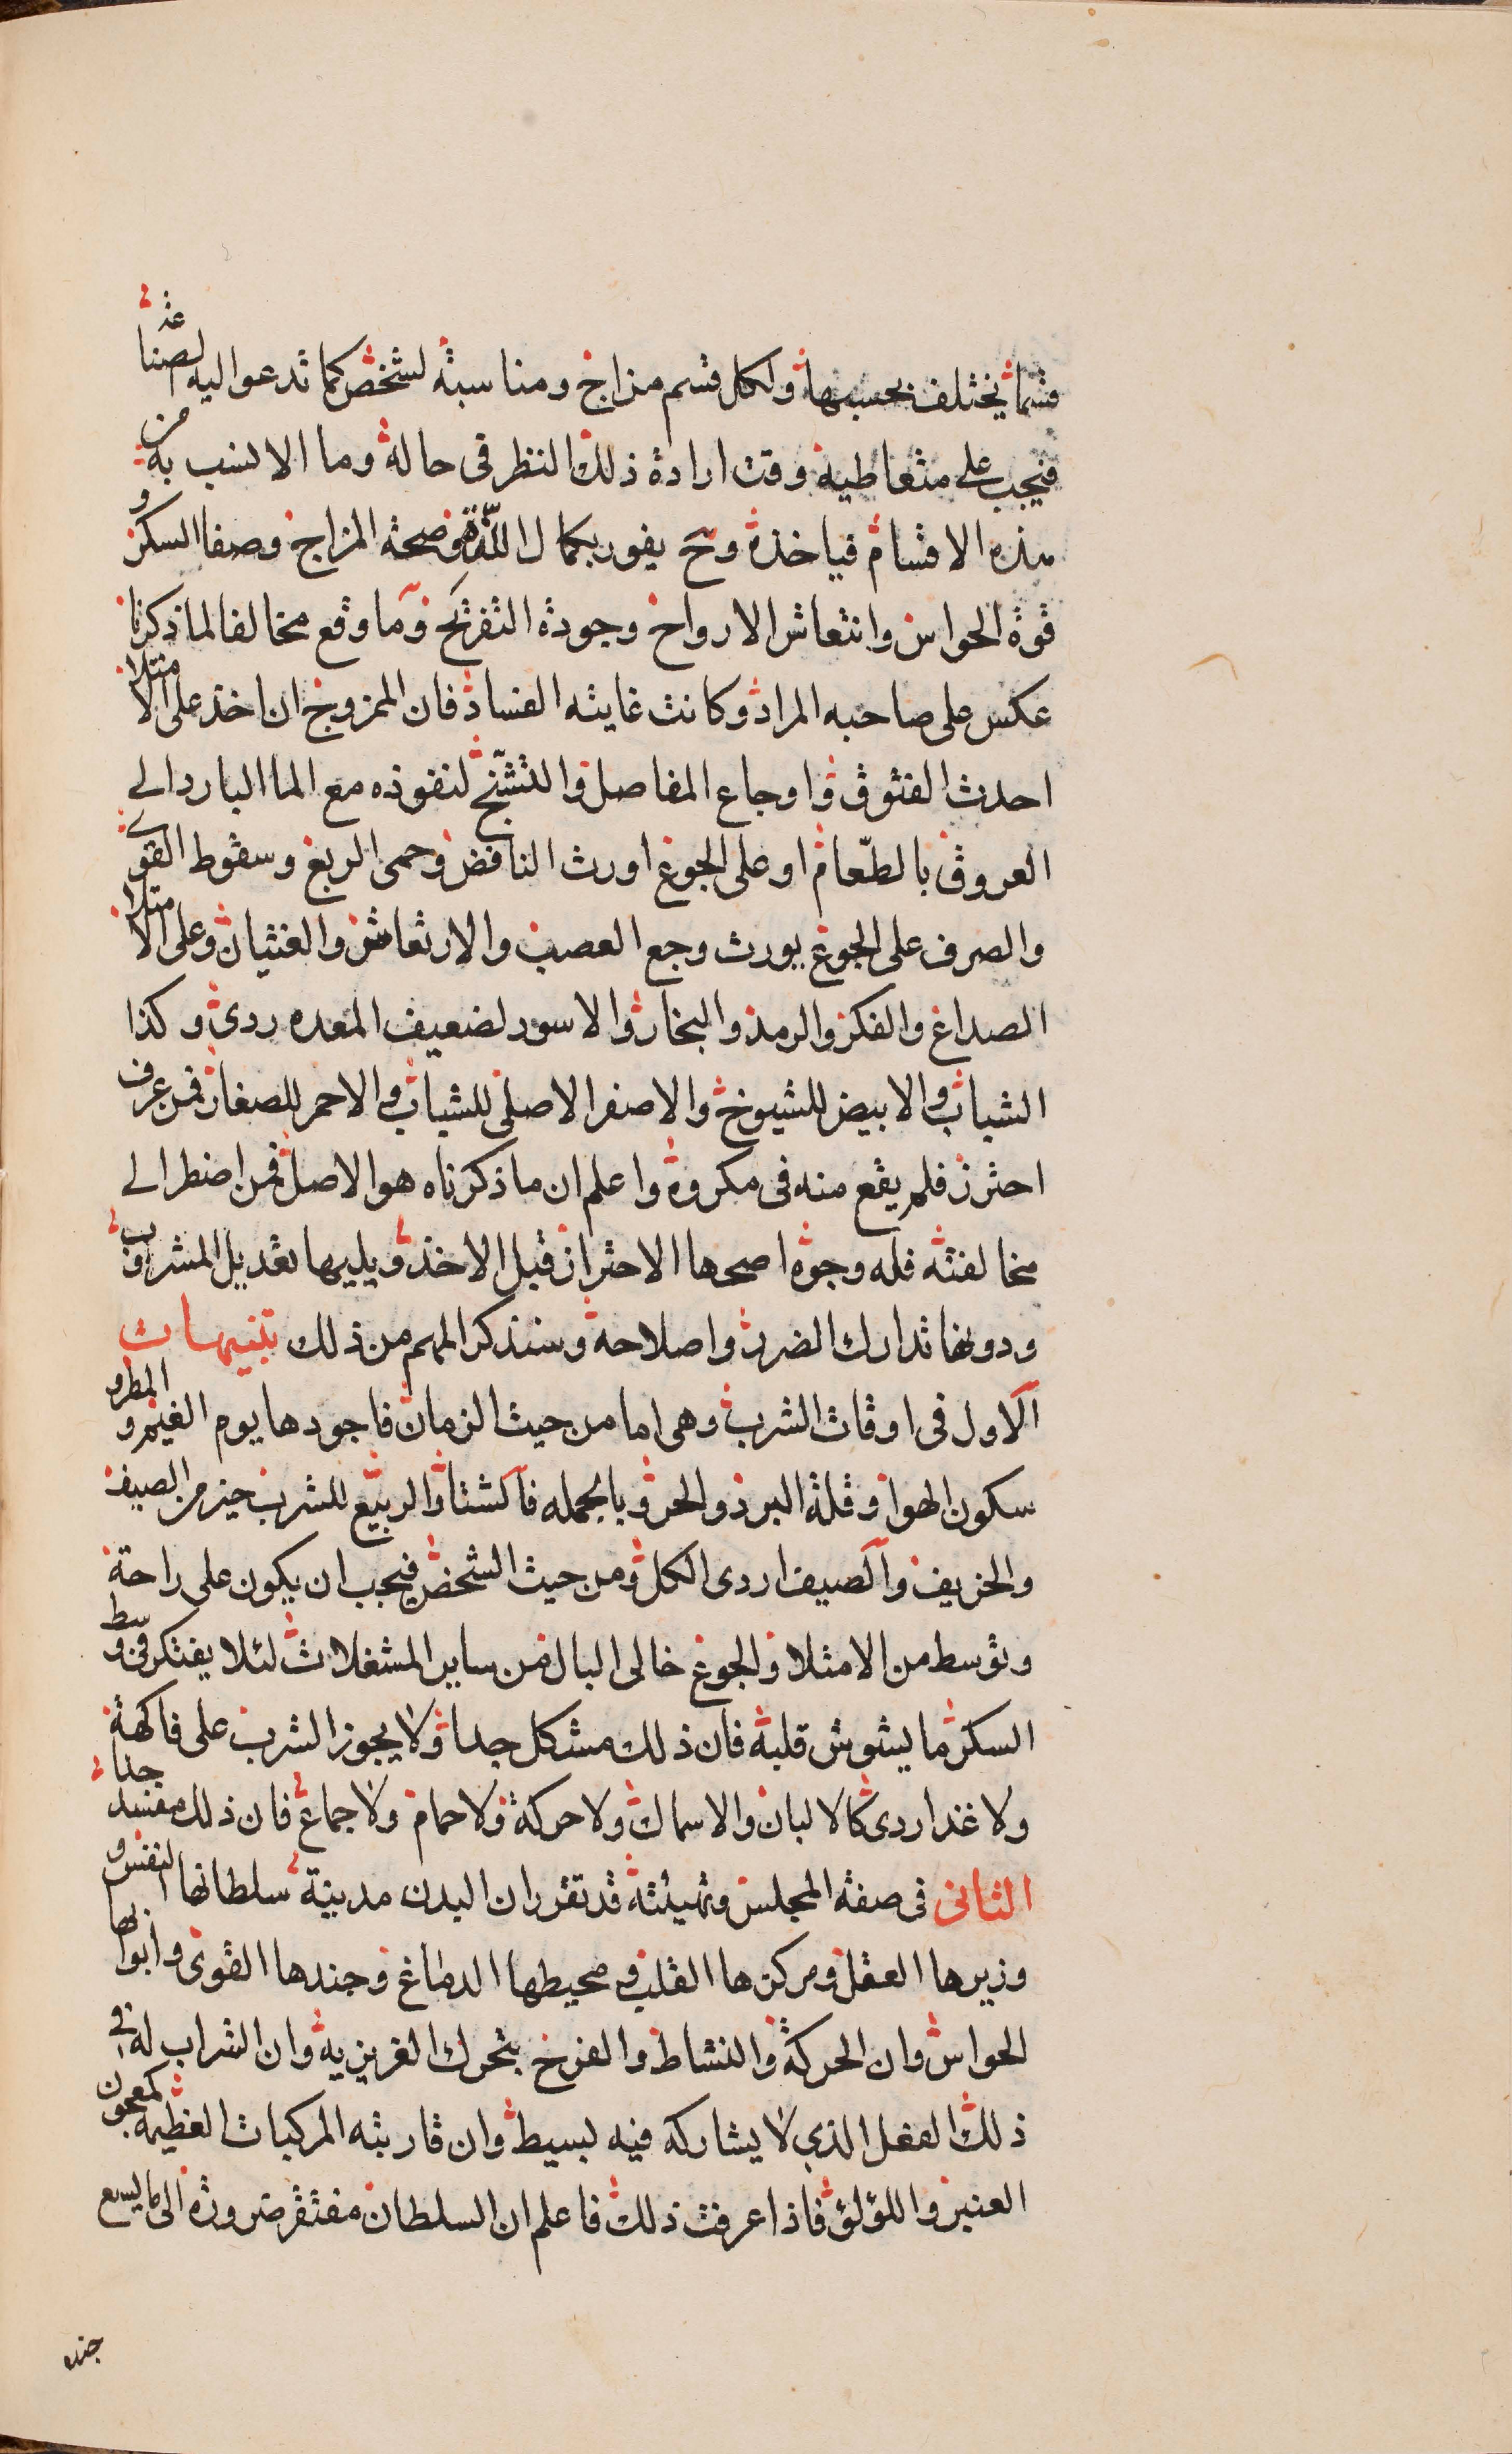 قسما يختلف بحسبها ولكل قسم مزاج ومناسبة لشخص كما تدعوا اليه الصناعة
فيجب على متعاطيه وقت ارادة ذلك النظر في حاله وما الانسب به من
هذه الاقسام فياخذه وح يفوز بكمال اللذة وصحة المزاج وصفا السكر و
قوة الحواس وانتعاش الارواح وجودة التفريح وما وقع مخالفا لما ذكرنا
عكس على صاحبه المراد وكانت غايته الفساد فان الممزوج ان اخذ على الامتلا
احدث الفتوق واوجاع المفاصل والتشنج لنفوذه مع الما البارد الى
العروق بالطعام او على الجوع اورث النافض وحمى الربع وسقوط القوى
والصرف على الجوع يورث وجع العصب والارتعاش والغثيان وعلى الامتلا
الصداع والفكر والرمد والبخار والاسود لضعيف المعده ردى وكذا
الشباب والابيض للشيوخ والاصفر الاصلى للشباب والاحمر للصغار فمن عرف
احترز فلم يقع منه فى مكروه واعلم ان ما ذكرناه هو الاصل فمن اضطر الى
مخالفته فله وجوه اصحها الاحتراز قبل الاخذ ويليها تعديل المشروب
ودونها تدارك الضرر واصلاحه وسنذكر المهم من ذلك تنبيهات
الاول فى اوقات الشرب وهى اما من حيث الزمان فاجودها يوم الغيم والمطر و
سكون الهوا وقلة البرد والحر وبالجمله فالشتا والربيع للشرب خير من الصيف
والخريف والصيف اردى الكل ومن حيث الشخص فيجب ان يكون على راحة
وتوسط من الامتلا والجوع خالى البال من ساير المشغلات لئلا يفتكر فى وسط
السكر ما يشوش قلبه فان ذلك مشكل جدا ولا يجوز الشرب على فاكهة
ولا غذا ردى كالالبان والاسماك ولا حركة ولا حمام ولا جماع فان ذلك مفسد جدا
الثانى فى صفة المجلس وتهيئته قد تقرر ان البدن مدينة سلطانها النفس و
وزيرها العقل ومركزها القلب ومحيطها الدماغ وجندها القوى وابوابها
الحواس وان الحركة والنشاط والفرح بتحرك الغريزيه وان الشراب له فى
ذلك الفعل الذي لا يشاركه فيه بسيط وان قاربته المركبات العظيمه كمعجون
العنبر واللؤلؤ فاذا عرفت ذلك فاعلم ان السلطان مفتقر ضرورة الى ما يسع
جنده